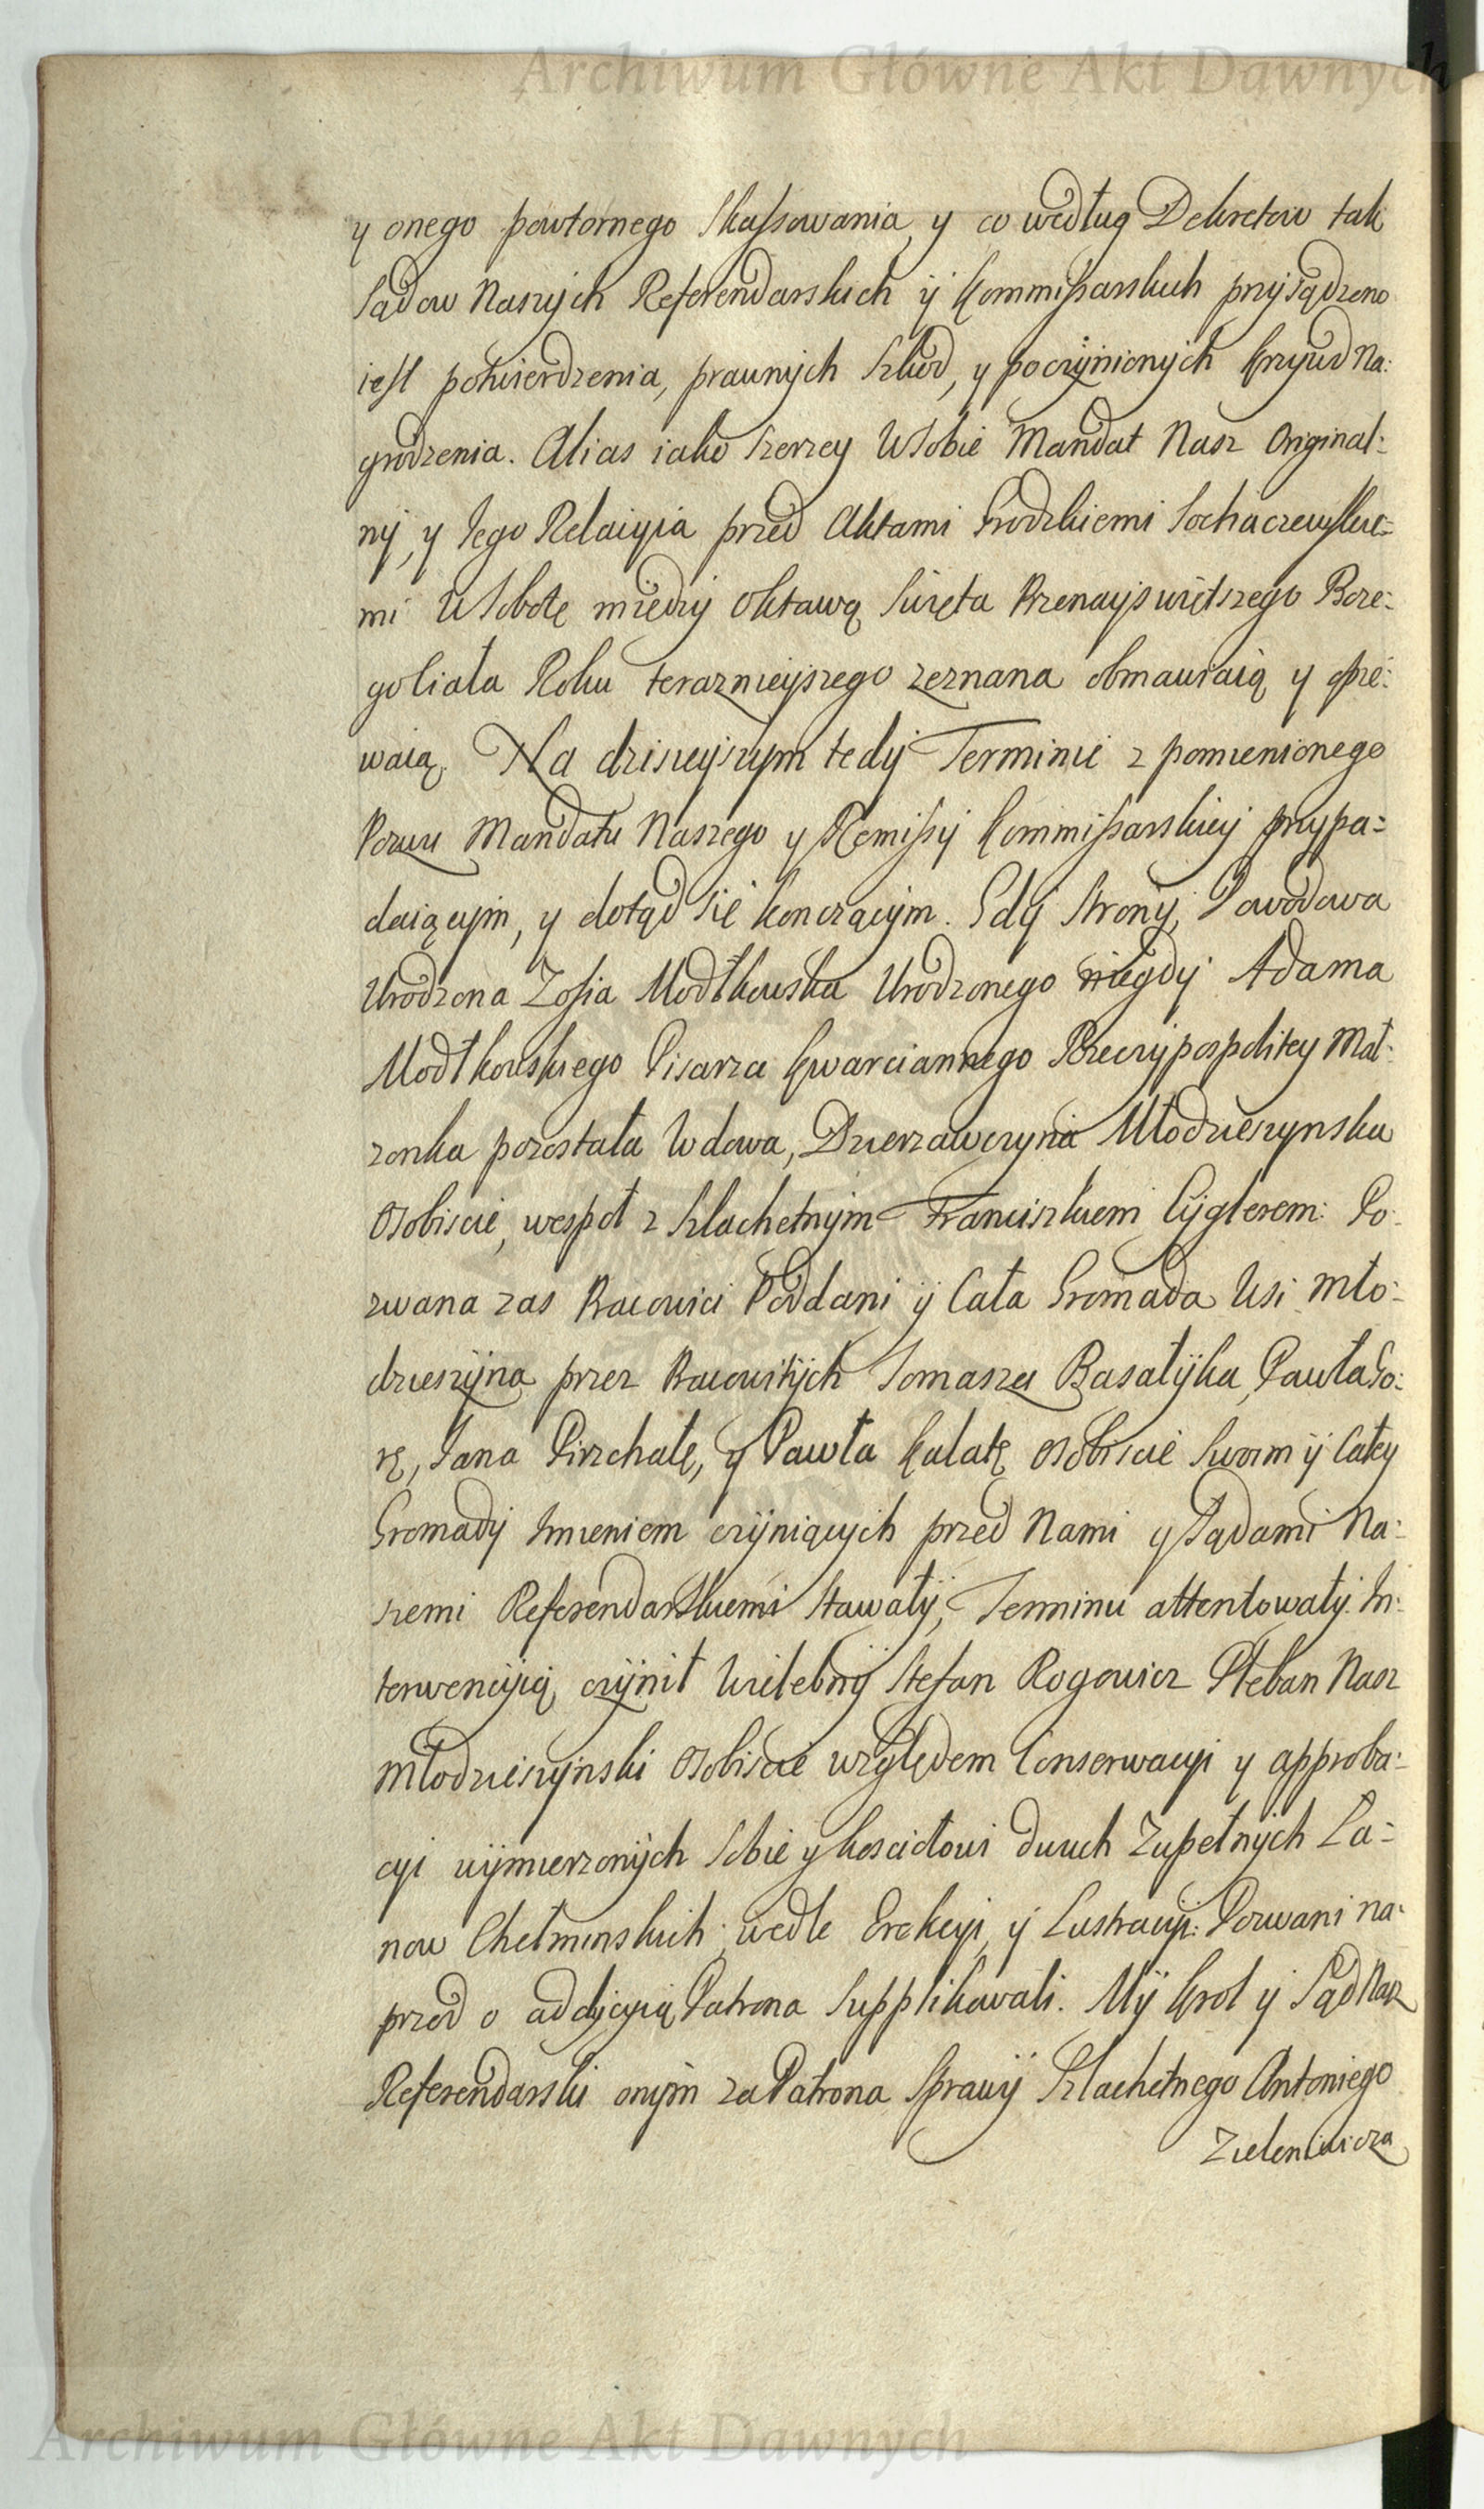 Archiwum Główne Akt Dawnych
y onego powtornego Skassowania, y co według Dekretow tak
Sądow Naszych Referendarskich ÿ Kommissarskich przysądzono
iest potwierdzenia, prawnych Szkod, y poczÿnionych Krzywd Na:
grodzenia. Alias iako szerzey W Sobie Mandat Nasz Original:
nÿ, y Jego Relacyia przed Aktami Grodzkiemi Sochaczewskie:
mi W Sobotę między Oktawą Swięta Przenayswiętszego Boze:
go Ciała Roku terazniejszego zeznana obmawiaią y opie:
waią. Na dzisieyszym tedÿ Terminie z pomienionego
Pozwu Mandatu Naszego y Remissÿ Kommissarskieÿ przypa:
daiącym, y dotąd się konczącÿm. Gdÿ Strony, Powodowa
Urodzona Zofia Modłkowska Urodzonego niegdÿ Adama
Modłkowskiego Pisarza Kwarciannego Rzeczypospolitey Mał:
zonka pozostała Wdowa, Dzierzawczyna Młodzieszynska
Osobiscie, wespoł z Szlachetnÿm Franciszkiem Cÿglerem: Po:
zwana zas Pracowici Poddani ÿ Cała Gromada Wsi Mło:
dzieszÿna przez Pracowitÿch Tomasza Basałÿka, Pawła Go:
rę, Jana Pirzchałę, y Pawła Kalatę osobiscie Swoim ÿ Całey
Gromadÿ Imieniem czÿniącÿch przed Nami y Sądami Na:
szemi Referendarskiemi Stawałÿ, Terminu attentowałÿ. In:
terwencÿią czÿnił Wielebnÿ Stefan Rogowicz Pleban Nasz
Młodzieszÿnski Osobiscie względem Conserwacyi y approba:
cyi wÿmierzonÿch Sobie y Kosciołowi dwuch Zupełnÿch Ła:
now Chełminskich, wedle Erekcyi, ÿ Lustracyi: Pozwani na:
przod o addÿcyią Patrona Supplikowali. Mÿ Krol ÿ Sąd Nasz
Referendarski onÿm za Patrona Sprawÿ Szlachetnego Antoniego
Zieleniewicza
Archiwum Główne Akt Dawnych